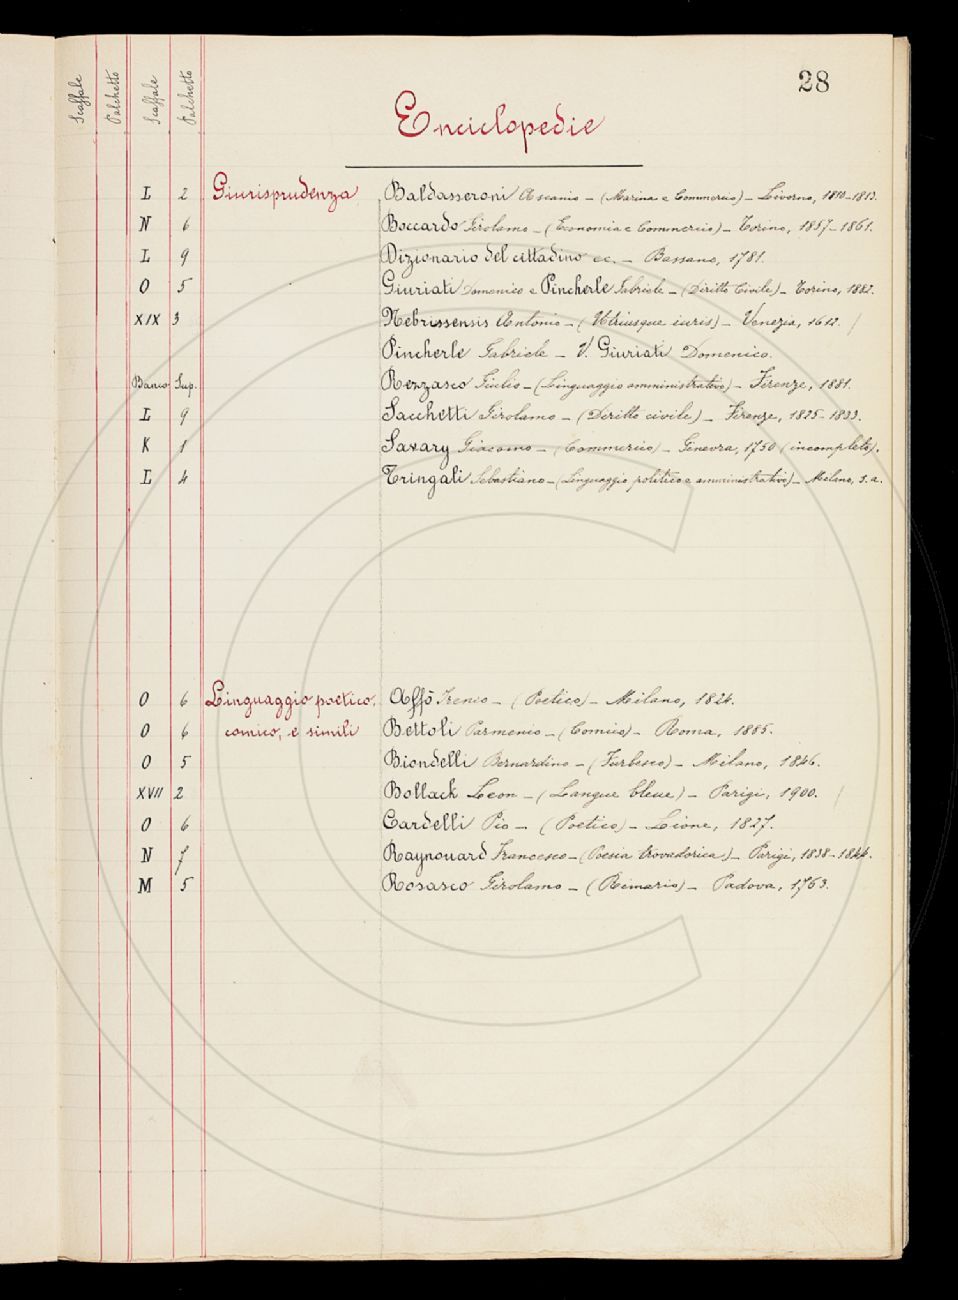 28
Scaffale Palchetto Scaffale Palchetto
Enciclopedie
L 2 Giurisprudenza Baldasseroni Ascanio - (Marina e Commercio) - Livorno, 1810-1813.
N 6 Boccardo Girolamo - (Economia e Commercio) - Torino, 1857-1861.
L 9 Dizionario del cittadino ec. - Bassano, 1781.
O 5 Giuriati Domenico e Pincherle Gabriele - (Diritto Civile) - Torino, 1882.
XIX 3 Nebrissensis Antonio - (Utriusque iuris) - Venezia, 1612.
Pincherle Gabriele - V. Giuriati Domenico.
Banco Sup. Rezzasco Giulio - (Linguaggio amministrativo) - Firenze, 1881.
L 9 Sacchetti Girolamo - (Diritto civile) - Firenze, 1825-1833.
K 1 Savary Giacomo - (Commercio) - Ginevra, 1750 (incompleto).
L 4 Tringali Sebastiano - (Linguaggio politico e amministrativo) - Milano, s.a.
O 6 Linguaggio poetico, Affò Ireneo - (Poetico) - Milano, 1824.
O 6 comico, e simili Bertoli Parmenio - (Comico) - Roma, 1885.
O 5 Biondelli Bernardino - (Furbesco) - Milano, 1846.
XVII 2 Bollack Leon - (Langue bleue) - Parigi, 1900.
O 6 Cardelli Pio - (Poetico) - Lione, 1827.
N 7 Raynouard Francesco - (Poesia trovadorica) - Parigi, 1838-1844.
M 5 Rosasco Girolamo - (Rimario) - Padova, 1763.